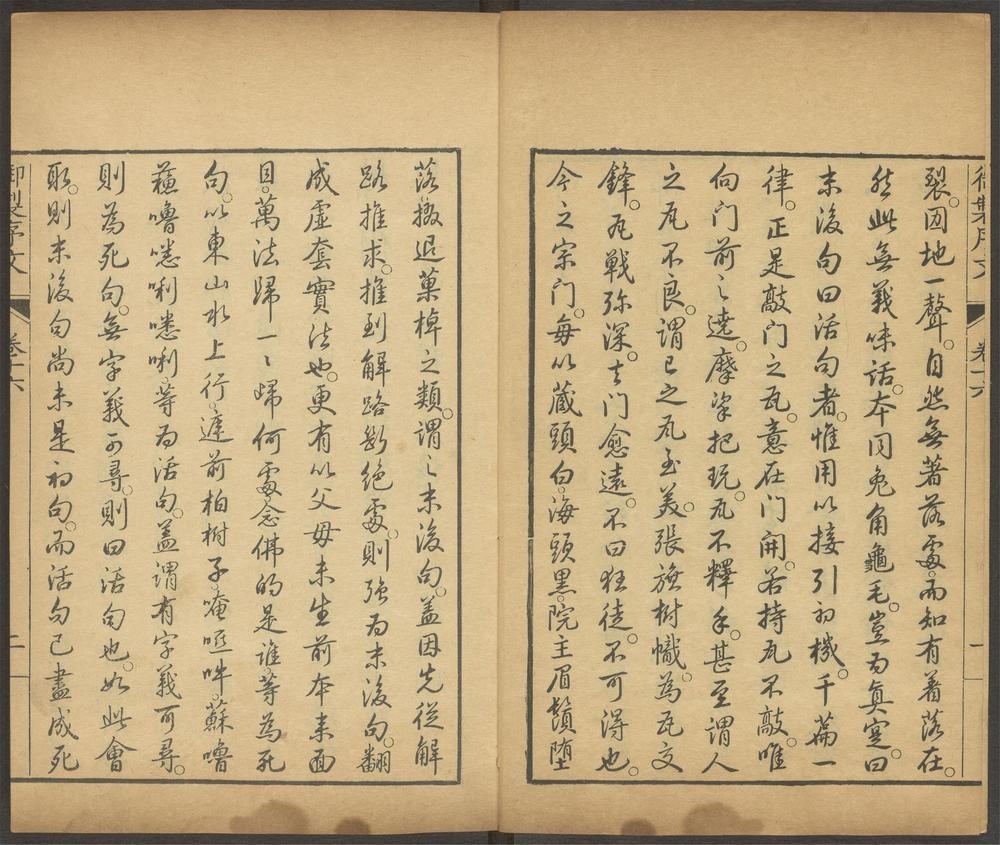 裂。囡地一聲。自然無著落處。而知有着落在。
然此無義味話。本同兔角龜毛。豈為真寔。曰
末後句曰活句者。惟用以接引初機。千篇一
律。正是敲門之瓦。意在門開。若持瓦不敲。唯
向門前之遶。摩挲把玩。瓦不釋手。甚至謂人
之瓦不良。謂己之瓦至美。張旗樹幟。為瓦交
鋒。瓦戰弥深。去門愈遠。不曰狂徒。不可得也。
今之宗門。每以藏頭白。海頭黑。院主眉鬚堕
落。掇退菓棹之類。謂之末後句。蓋因先從解
路推求。推到解路斷絕處。則强為末後句。翻
成虛套實法也。更有以父母未生前本来面
目。萬法歸一一歸何處。念佛的是誰。等為死
句。以東山水上行。遮前柏樹子。唵𠱥吽。蘇嚕
薩嚕嘥唎嘥唎。等為活句。蓋謂有字義可尋。
則為死句。無字義可尋。則曰活句也。如此會
取。則末後句尚未是初句。而活句已盡成死
御製序文
卷十六
一
御製序文
卷十六
二